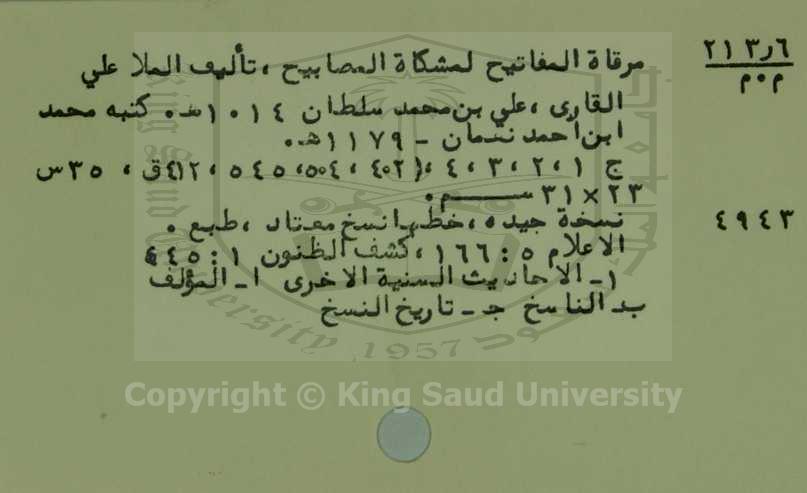 ٢١٣٫٦
م ٠ م
مرقاة المفاتيح لمشكاة المصابيح ، تأليف الملا علي
القارى ، علي بن محمد سلطان ١٠١٤هـ . كتبه محمد
ابن أحمد ندمان - ١١٧٩هـ .
ج ١ ، ٢ ، ٣ ، ٤ ، (٤٠٢ ، ٥٠٤ ، ٥٤٥ ، ٤١٢ق ، ٣٥س
٢٣ × ٣١ سم .
٤٩٤٣
نسخة جيده ، خطها نسخ معتاد ، طبع .
الاعلام ٥ : ١٦٦ ، كشف الظنون ١ : ٤٤٥
١- الاحاديث السنية الاخرى ا- المؤلف
بـ الناسخ جـ - تاريخ النسخ
1957
Copyright © King Saud University